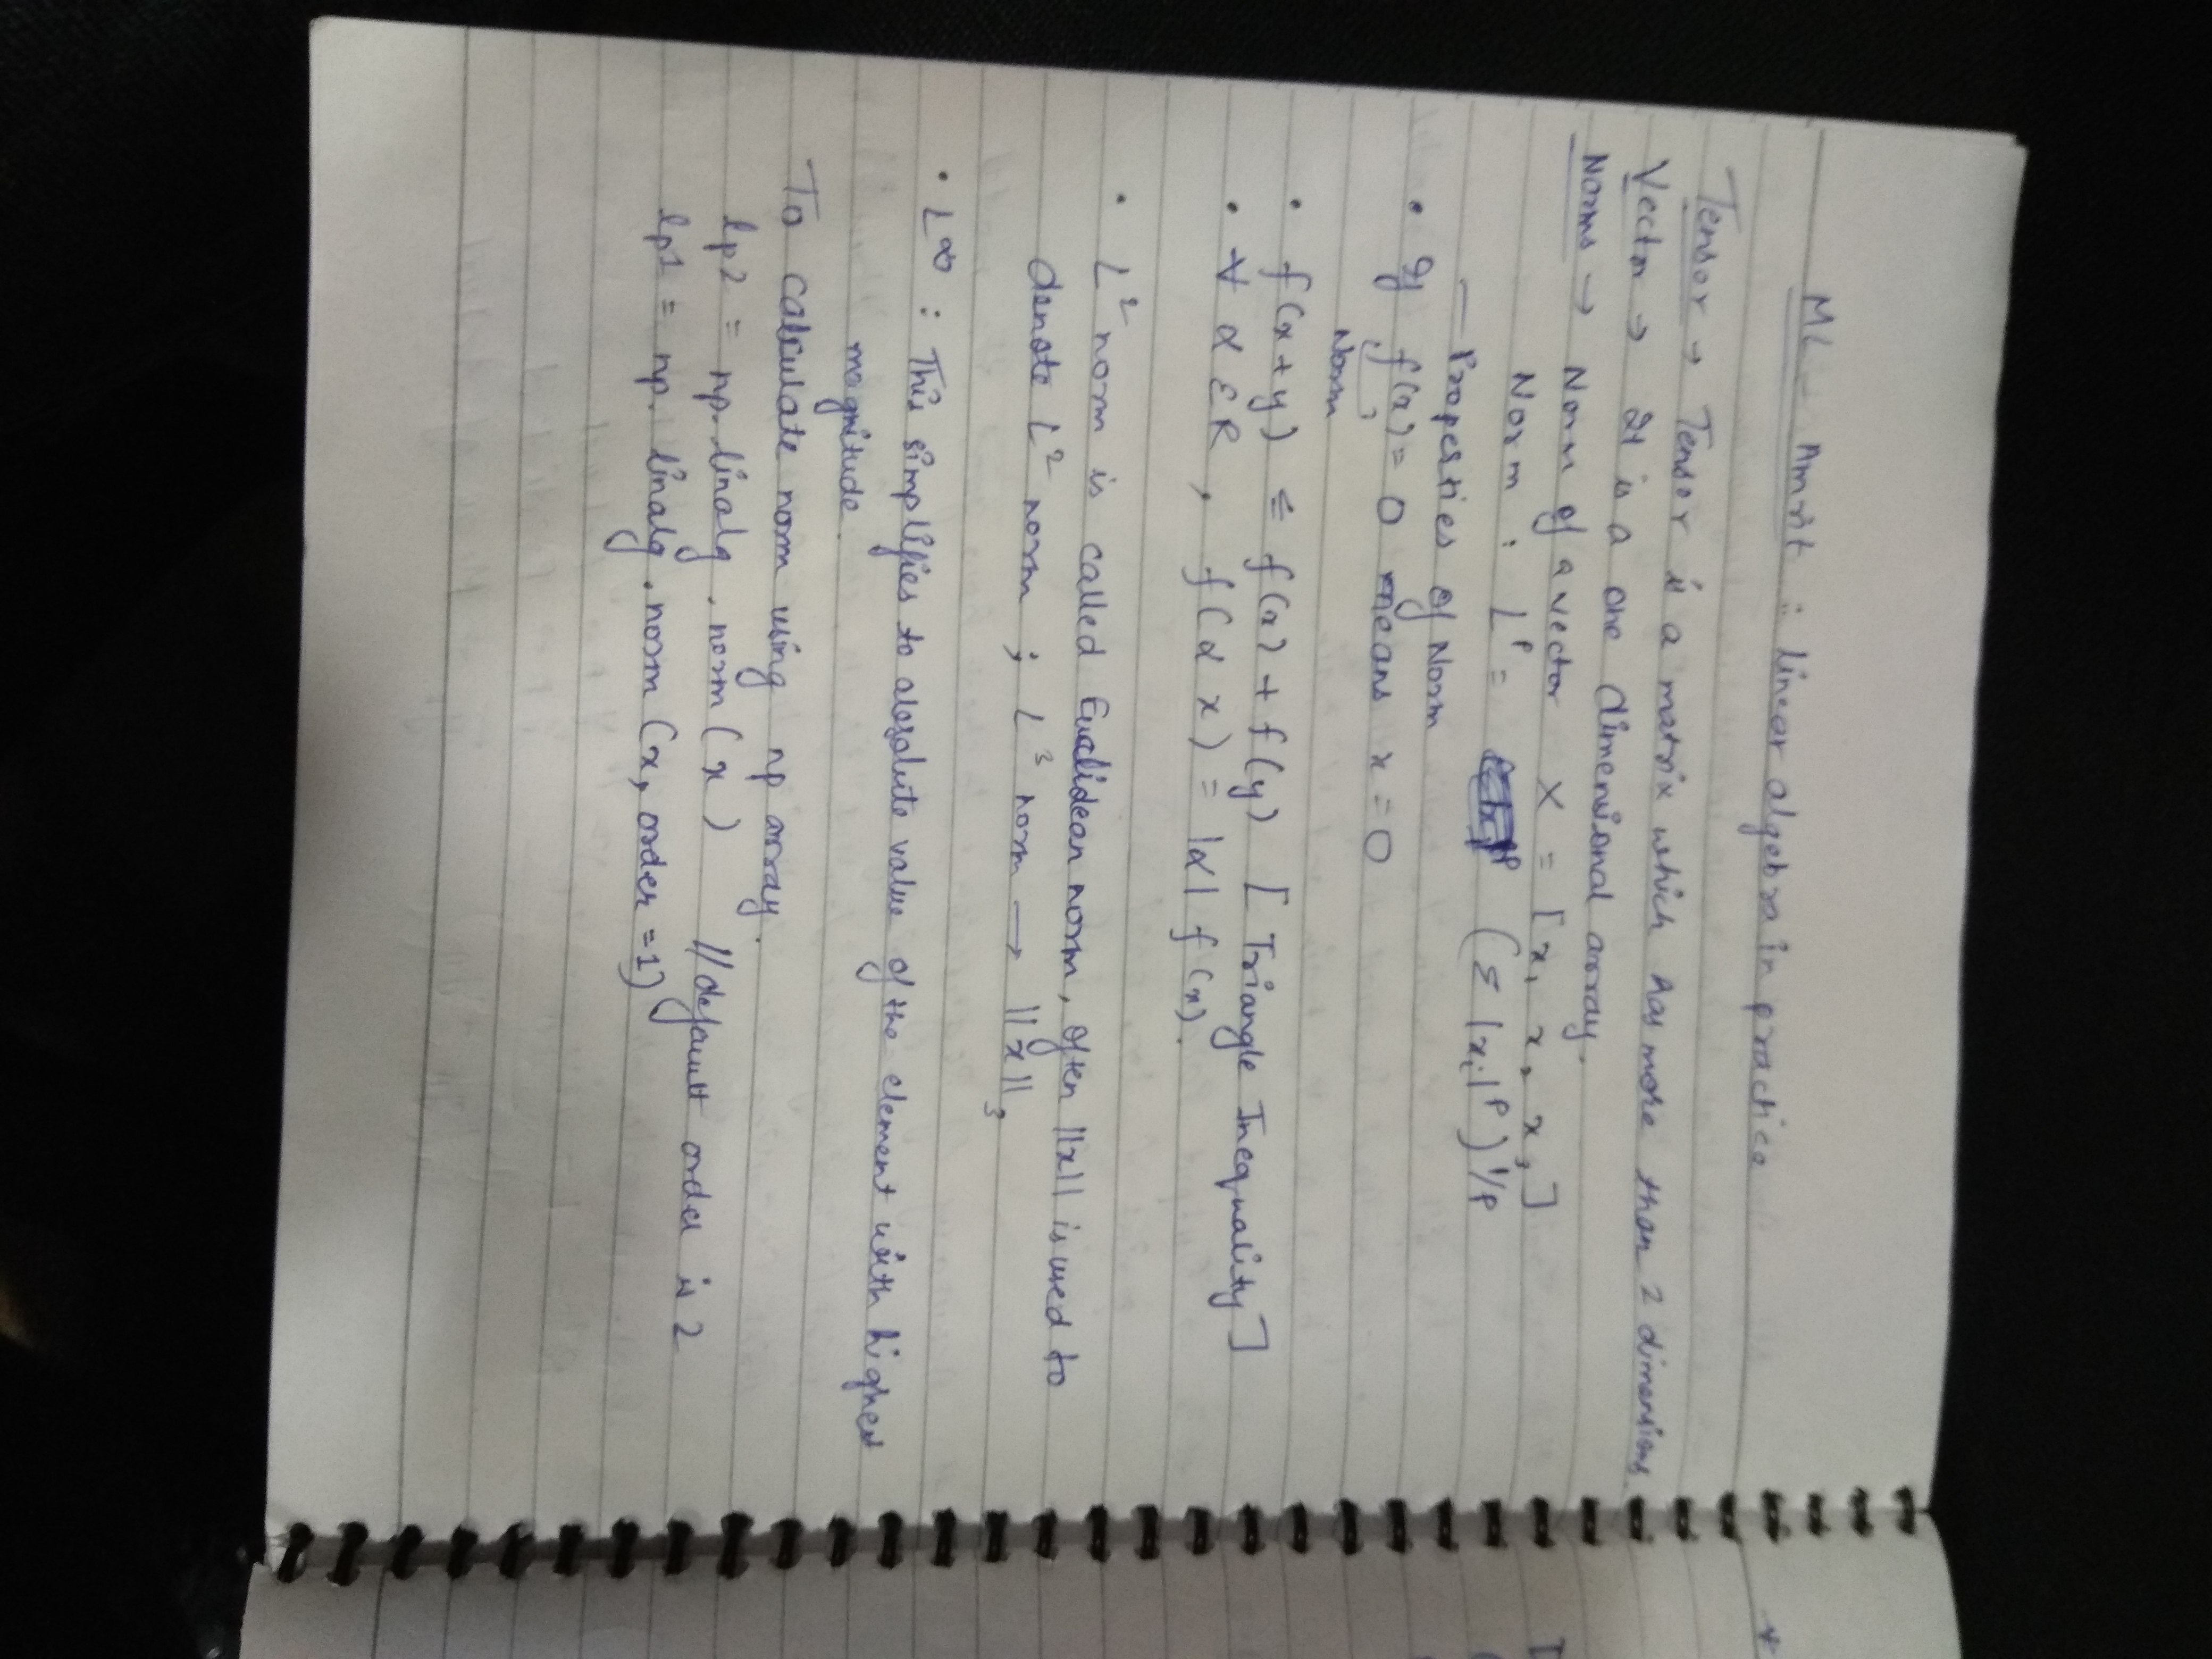 ML - Amrit :: linear algebra in practice
Tensor → Tensor is a matrix which has more than 2 dimensions
Vector → It is a one dimensional array.
Norms → Norm of a vector X = [x₁ x₂ x₃]
Norm : Lᵖ = (Σ |xᵢ|ᵖ)^1/p
— Properties of Norm
• If f(x) = 0 means x = 0
Norm
• f(x+y) ≤ f(x) + f(y) [Triangle Inequality]
• ∀ α ε R, f(αx) = |α| f(x).
• L² norm is called Euclidean norm, often ||x|| is used to
denote L² norm ; L³ norm → ||x||₃
• L∞ : This simplifies to absolute value of the element with highest
magnitude.
To calculate norm using np array.
lp2 = np.linalg.norm(x) //default order is 2
lp1 = np.linalg.norm(x, order=1)